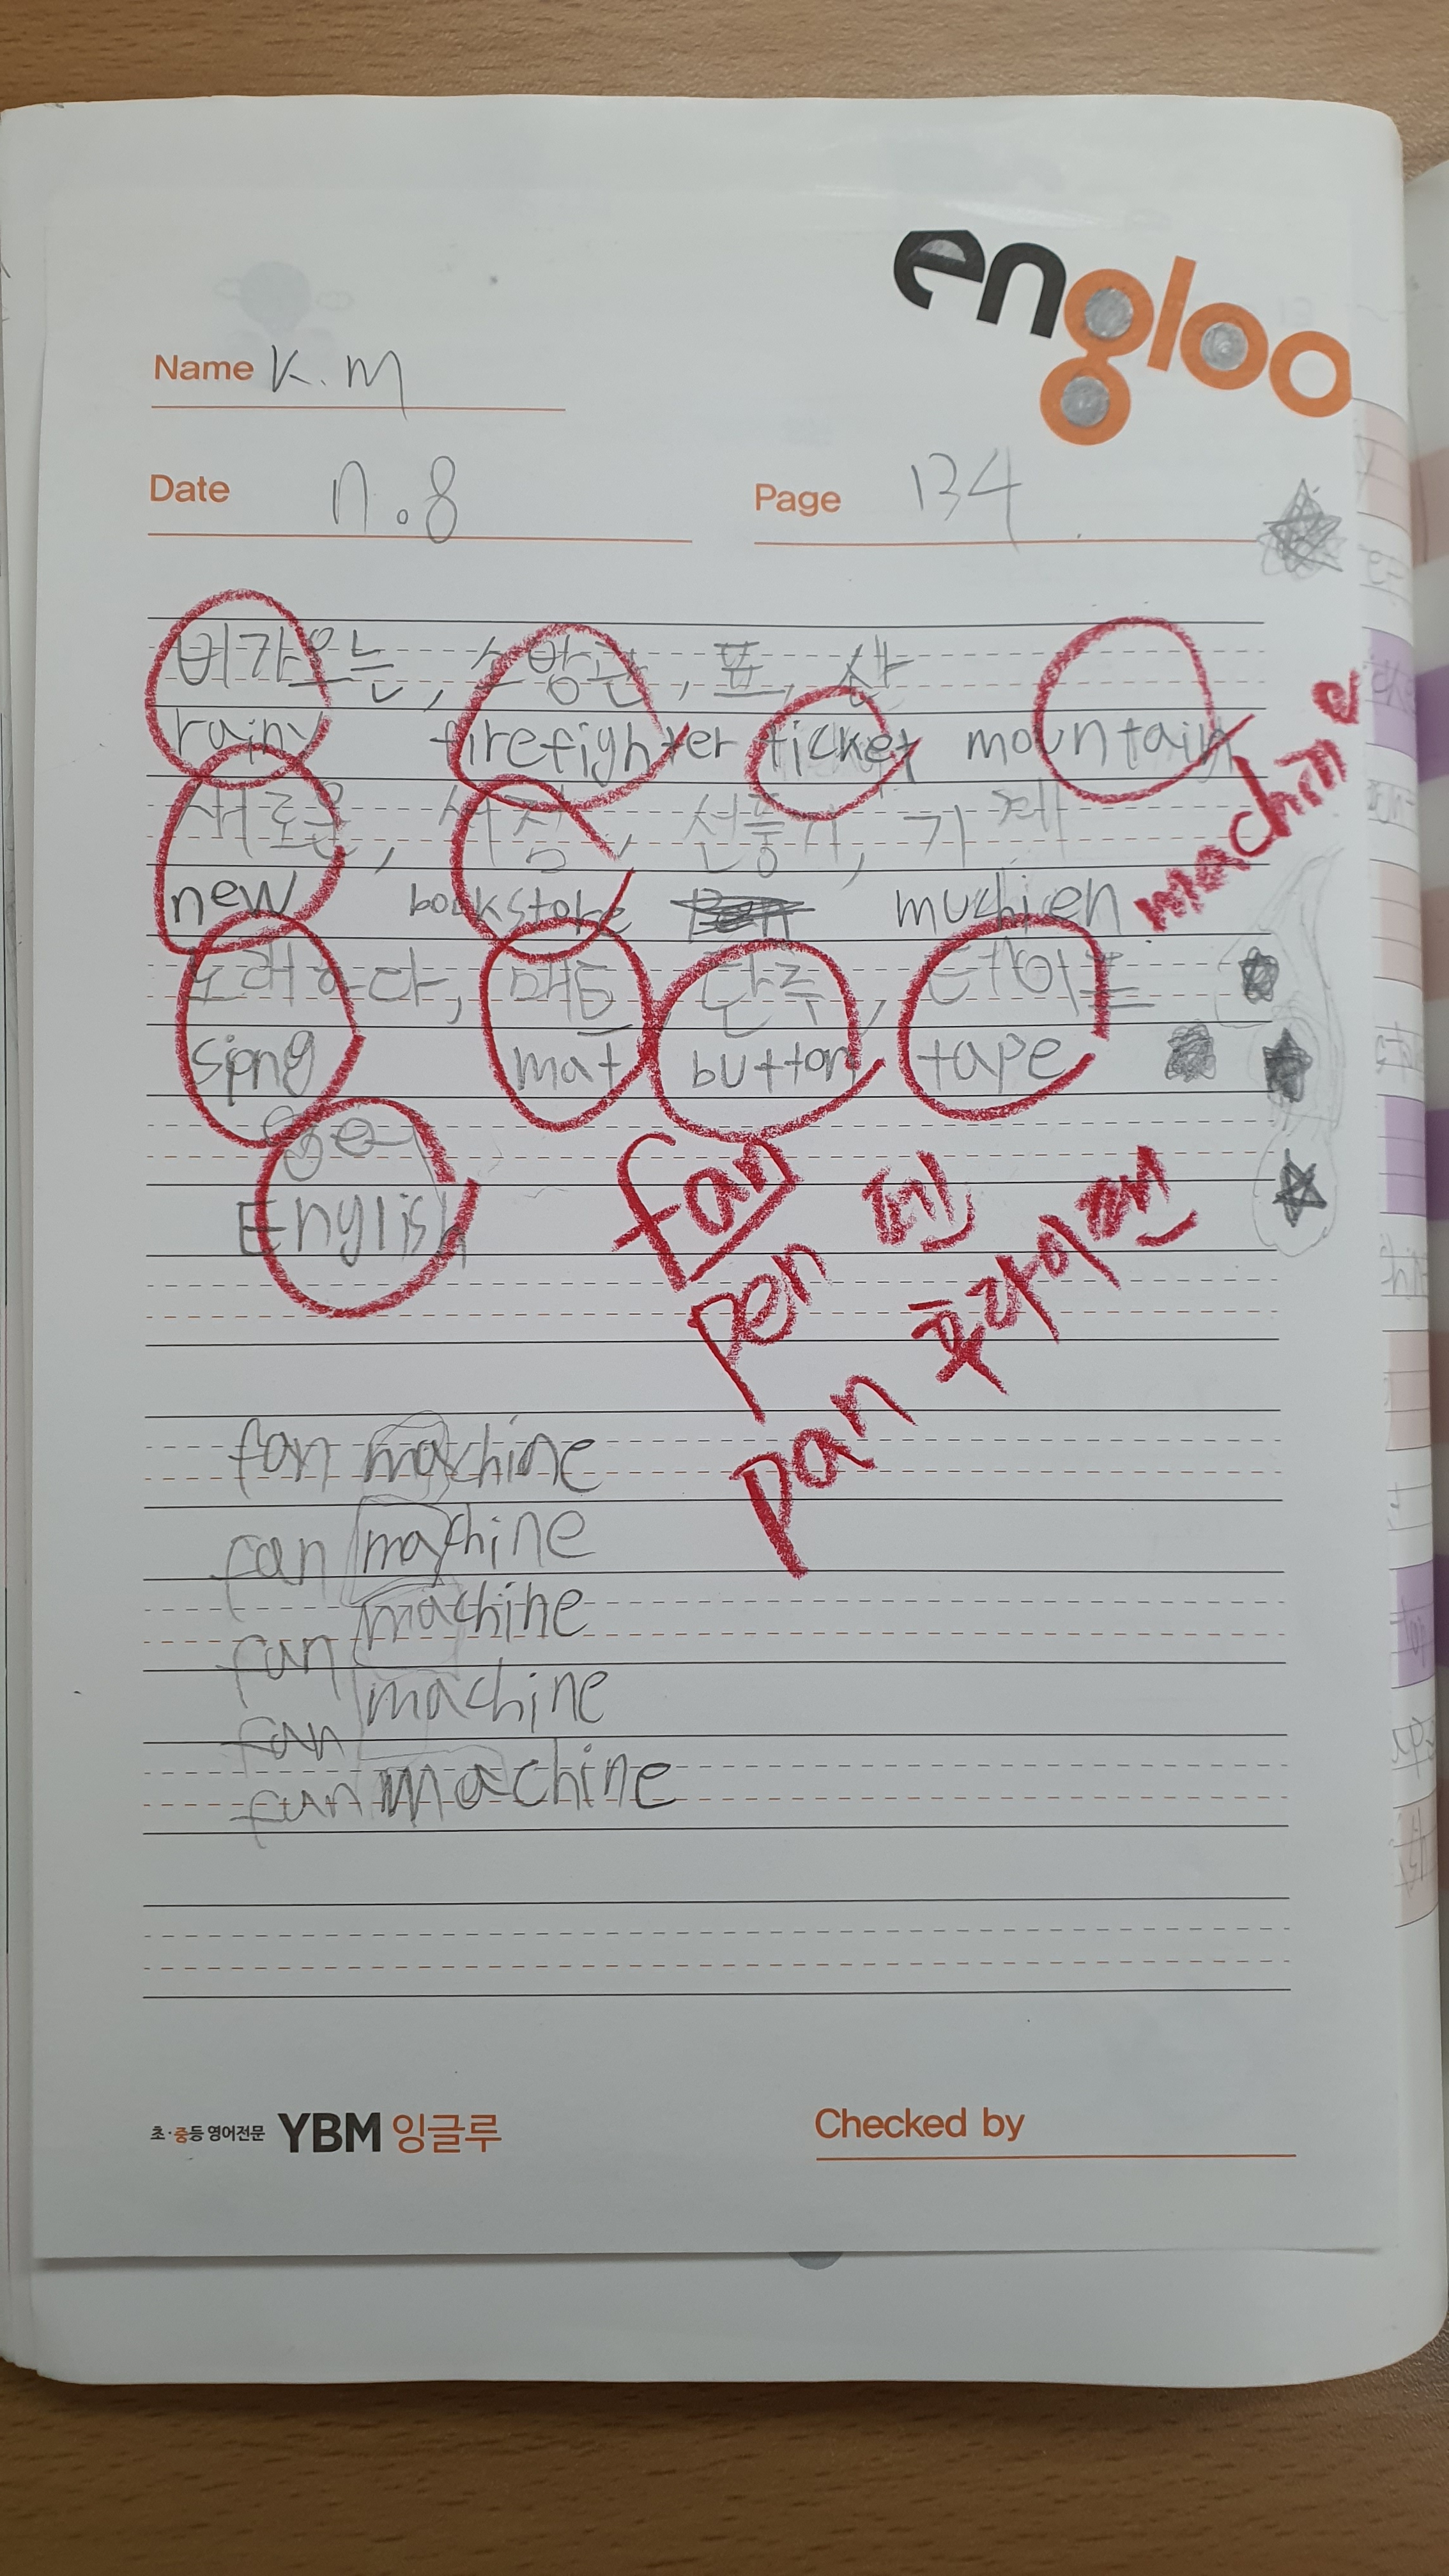 engloo
Name K.M
Date n.8 Page 134
비가오는, 소방관, 표, 산
rainy firefighter ticket mountain
새로운, 서점, 선풍기, 기계
new bookstore muchien machine
노래하다, 매트, 단추, 테이프
sing mat button tape
영어
English
fan
pen 펜
pan 후라이팬
fan machine
fan machine
fan machine
fan machine
fan machine
초·중등 영어전문 YBM 잉글루 Checked by